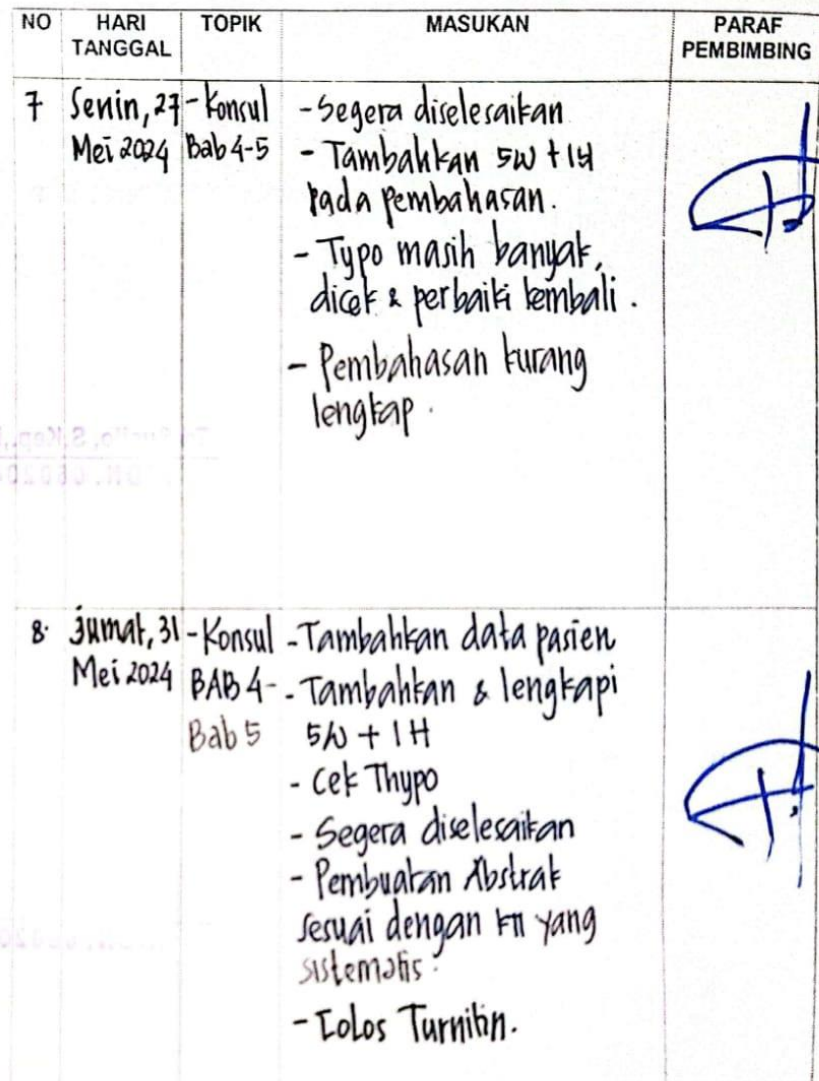 NO HARI TANGGAL TOPIK MASUKAN PARAF PEMBIMBING
7 Senin, 27 Mei 2024
- Konsul Bab 4-5
- Segera diselesaikan
- Tambahkan 5W + 1H
pada pembahasan.
- Typo masih banyak,
dicek & perbaiki kembali.
- Pembahasan kurang
lengkap.
8. Jumat, 31 Mei 2024
- Konsul BAB 4- Bab 5
- Tambahkan data pasien
- Tambahkan & lengkapi
5W + 1H
- Cek Thypo
- Segera diselesaikan
- Pembuatan Abstrak
sesuai dengan KTI yang
sistematis.
- Lolos Turnitin.